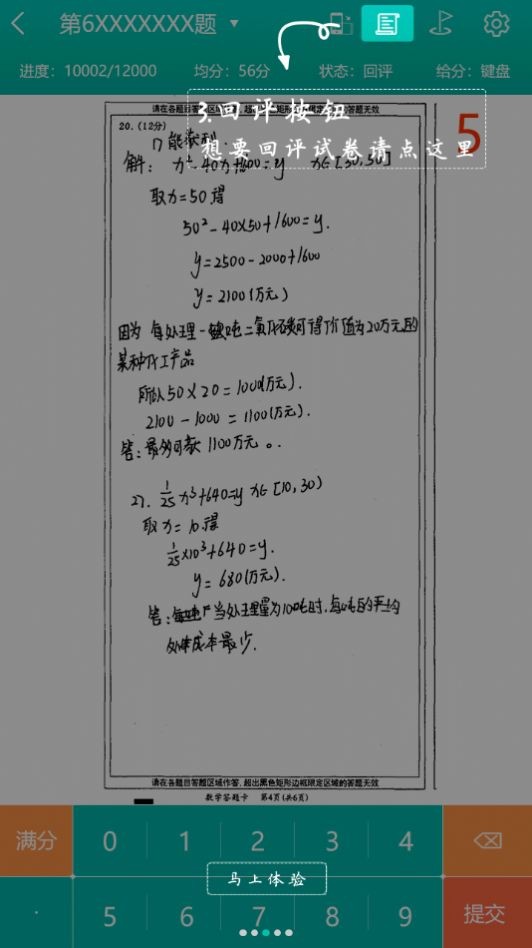 第6XXXXXXX题
进度：10002/12000 均分：56分 状态：回评 给分：键盘
请在各题目答题区域作答，超出黑色矩形边框限定区域的答题无效
3.回评按钮
想要回评试卷请点这里
5
20. (12分)
解：x²-40x+1600=y x∈[30,50]
取x=50得
50²-40×50+1600=y.
y=2500-2000+1600
y=2100(万元)
因为 每处理一吨二氧化碳可得价值为20万元的
某种化工产品
所以50×20=1000(万元).
2100-1000=1100(万元).
答:最多亏款1100万元。.
1/25x³+640=y x∈[10,30)
取x=10得
1/25×10³+640=y.
y=680(万元).
答:当处理量为10吨时,每吨的平均
处理成本最少.
请在各题目答题区域作答，超出黑色矩形边框限定区域的答题无效
数学答题卡 第4页(共6页)
满分 0 1 2 3 4
马上体验
· 5 6 7 8 9 提交